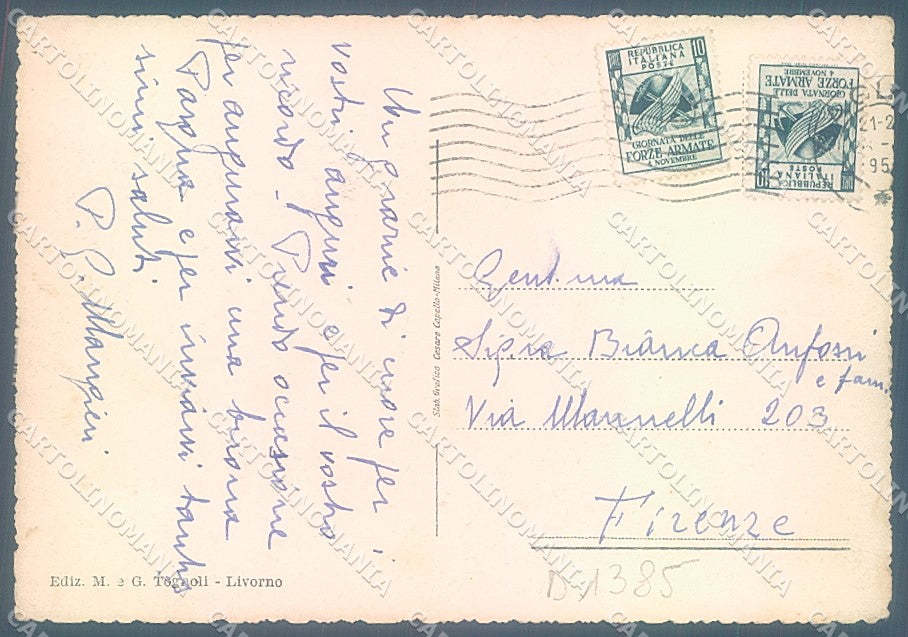 Un grazie di cuore per i
vostri auguri e per il vostro
ricordo - Prendo occasione
per augurarvi una buona
Pasqua e per inviarvi tanti
saluti
P.
REPUBBLICA
ITALIANA
POSTE
10
GIORNATA DELLE
FORZE ARMATE
4 NOVEMBRE
REPUBBLICA
ITALIANA
POSTE
10
GIORNATA DELLE
FORZE ARMATE
4 NOVEMBRE
21-2
95
Gent.ma
Sig.ra Bianca Anfossi
e fam.
Via Mannelli 203
Firenze
Stab. Grafico Cesare Capello-Milano
Ediz. M. e G. Tognoli - Livorno
D.1385
CARTOLINOMANIA